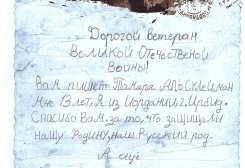 Дорогой ветеран
Великой Отечественой
Войны!
Вам пишет Тамара Аль Сулейман
Мне 8 лет, я из Иордании г. Ирбид.
Спасибо Вам за то, что защищали
нашу Родину, наш Русский род.
А ещё